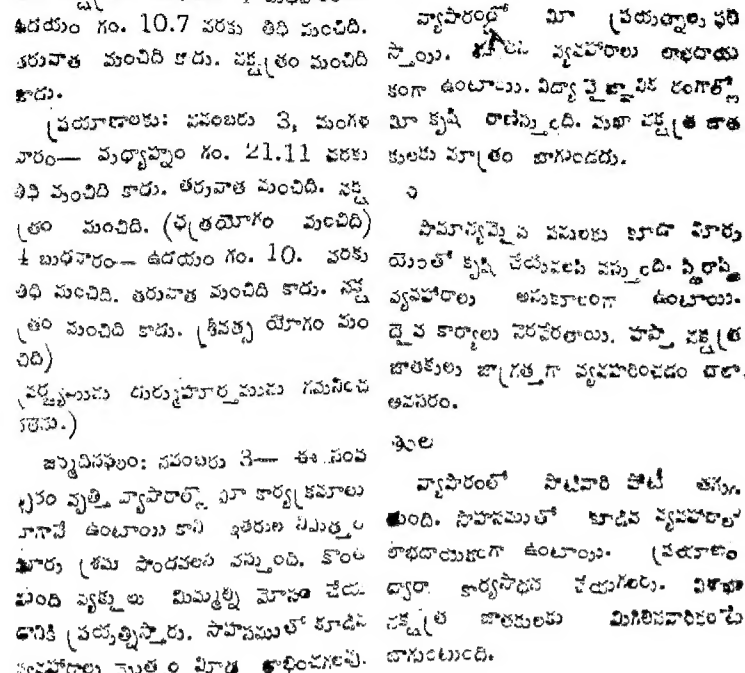 ఉదయం గం. 10.7 వరకు తిథి మంచిది.
తరువాత మంచిది కాదు. నక్షత్రం మంచిది
కాదు.
ప్రయాణాలకు: నవంబరు 3, మంగళ
వారం— మధ్యాహ్నం గం. 21.11 వరకు
తిథి మంచిది కాదు. తరువాత మంచిది. నక్ష
త్రం మంచిది. (ఛత్రయోగం మంచిది)
4 బుధవారం— ఉదయం గం. 10. వరకు
తిథి మంచిది. తరువాత మంచిది కాదు. నక్ష
త్రం మంచిది కాదు. (శ్రీవత్స యోగం మం
చిది)
(వర్జ్యమును దుర్ముహూర్తమును గమనించ
గలరు.)
జన్మదినఫలం: నవంబరు 3— ఈ సంవ
త్సరం వృత్తి వ్యాపారాల్లో మీ కార్యక్రమాలు
బాగానే ఉంటాయి కాని ఇతరుల నిమిత్తం
మీరు శ్రమ పొందవలసి వస్తుంది. కొంత
మంది వ్యక్తులు మిమ్మల్ని మోసం చేయ
డానికి ప్రయత్నిస్తారు. సాహసముతో కూడిన
వ్యవహారాలు మొత్తం మీద లాభించగలవు.
వ్యాపారంలో మీ ప్రయత్నాలు ఫలి
స్తాయి. వ్యవహారాలు లాభదాయ
కంగా ఉంటాయి. విద్యా వైజ్ఞానిక రంగాల్లో
మీ కృషి రాణిస్తుంది. మఖా నక్షత్ర జాత
కులకు మాత్రం బాగుండదు.
సామాన్యమైన పనులకు కూడా మీరు
యెంతో కృషి చేయవలసి వస్తుంది. స్థిరాస్తి
వ్యవహారాలు అనుకూలంగా ఉంటాయి.
దైవ కార్యాలు నెరవేరతాయి. హస్తా నక్షత్ర
జాతకులు జాగ్రత్తగా వ్యవహరించడం చాలా
అవసరం.
తుల
వ్యాపారంలో సాటివారి పోటీ తగ్గు
తుంది. సాహసముతో కూడిన వ్యవహారాలు
లాభదాయకంగా ఉంటాయి. ప్రయాణం
ద్వారా కార్యసాధన చేయగలరు. విశాఖా
నక్షత్ర జాతకులకు మిగిలినవారికంటె
బాగుంటుంది.